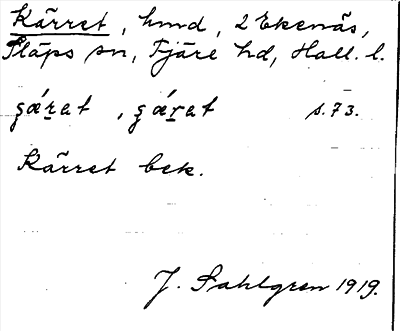 Kärret, hmd, 2 Ekenäs,
Släps sn, Fjäre hd, Hall. l.
s. 73.
Kärret bek.
J. Sahlgren 1919.